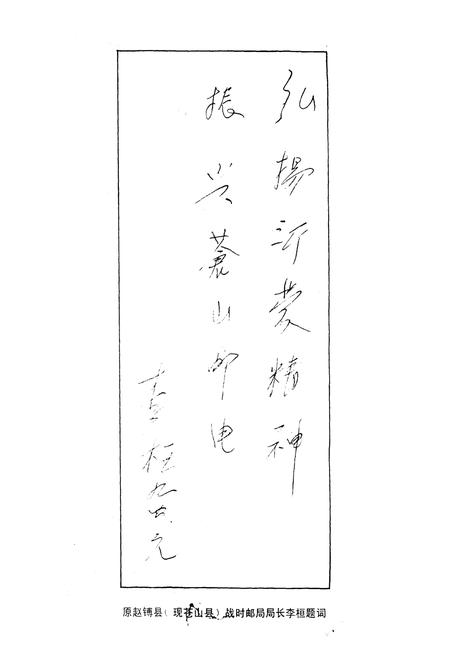 弘揚沂蒙精神
振兴蒼山邮电
李桓 九六.元
原赵镈县(现苍山县)战时邮局局长李桓题词